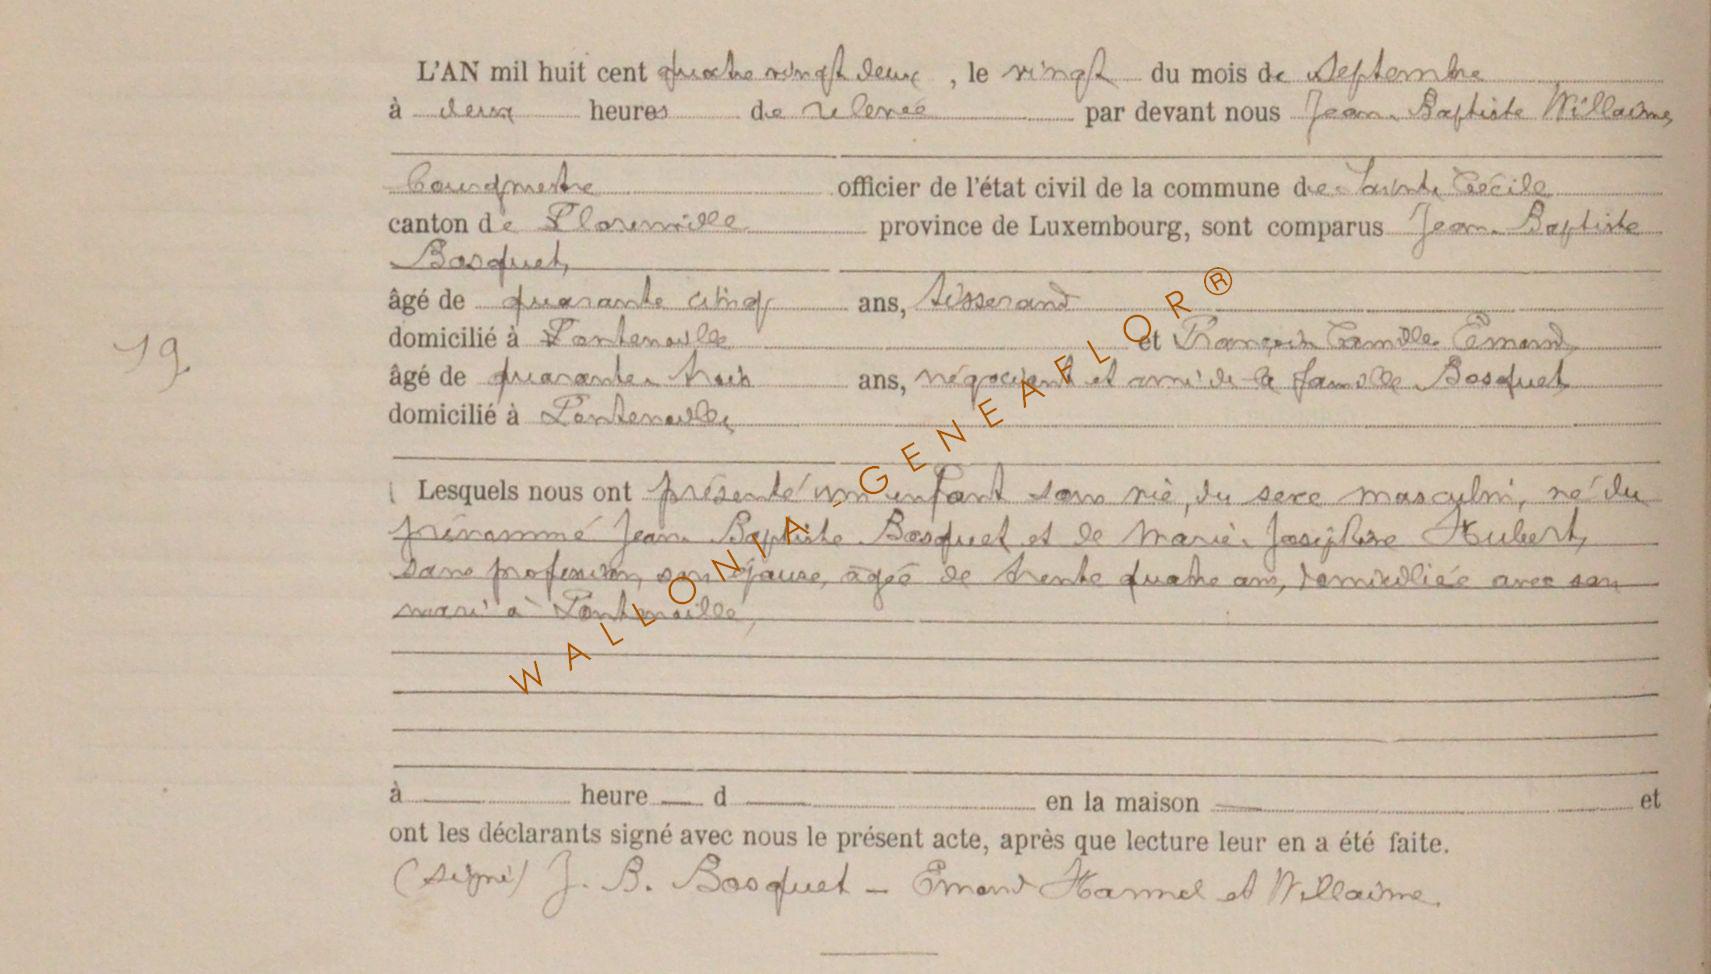 L'AN mil huit cent quatre vingt deux, le vingt du mois de septembre
à deux heures de relevée par devant nous Jean Baptiste Willaime,
Bourgmestre officier de l'état civil de la commune de Sainte Cécile
canton de Florenville province de Luxembourg, sont comparus Jean Baptiste
Bosquet,
âgé de quarante cinq ans, tisserand
domicilié à Fontenoille et François Camille Emond,
19.
âgé de quarante trois ans, négociant et ami de la famille Bosquet,
domicilié à Fontenoille,
Lesquels nous ont présenté un enfant sans vie, du sexe masculin, né du
prénommé Jean Baptiste Bosquet et de Marie Joséphine Hubert,
sans profession, son épouse, âgée de trente quatre ans, domiciliée avec son
mari à Fontenoille,
à heure d en la maison et
ont les déclarants signé avec nous le présent acte, après que lecture leur en a été faite.
(signé) J. B. Bosquet – Emond Hammel et Willaime.
WALLONIA-GENEAFLOR®